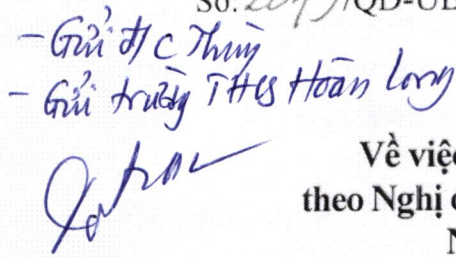 Số: /QĐ-UB
- Gửi đ/c Thùy
- Gửi trường THCS Hoàn Long
Về việc
theo Nghị đ
N